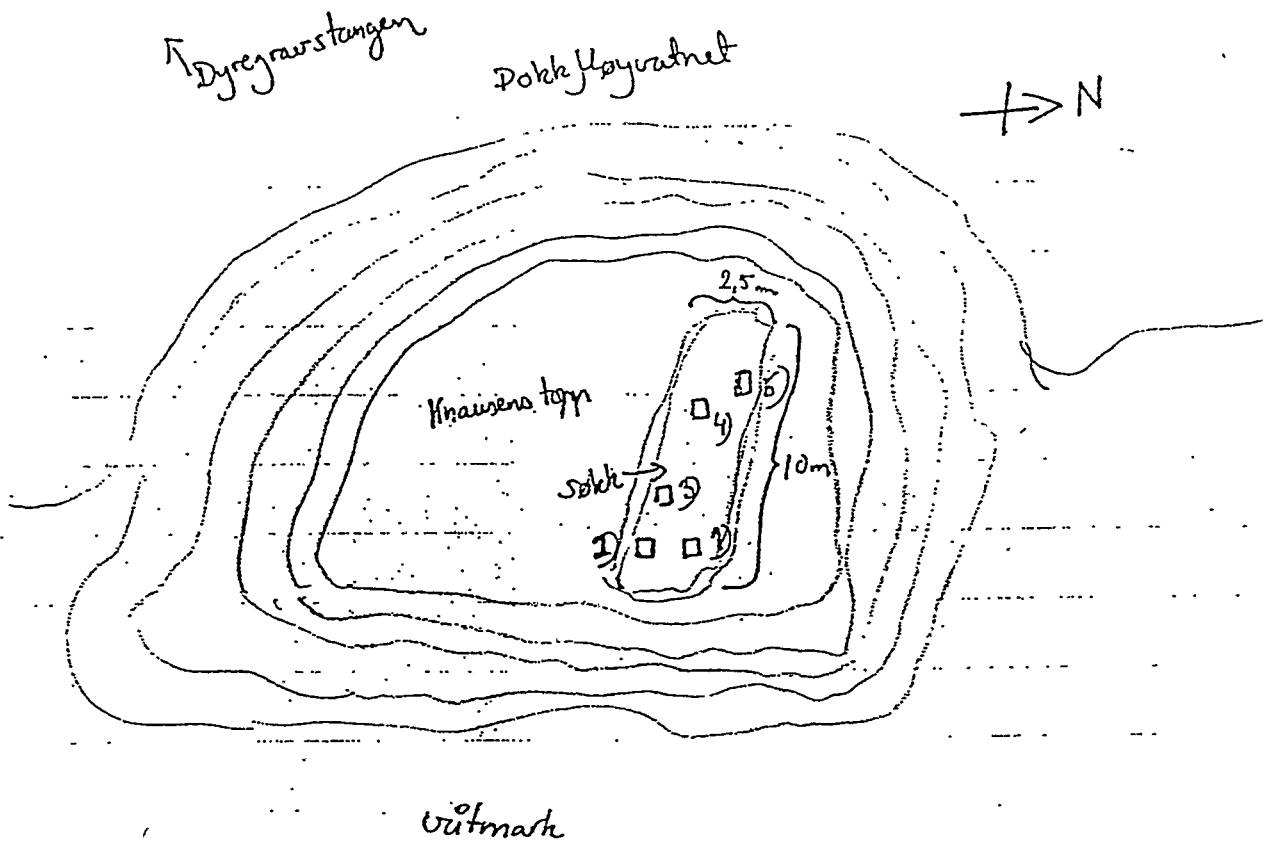 Dyregravstangen
Dokkfløyvatnet
N
2,5m
Knausens topp
4)
søkk
3)
10m
1)